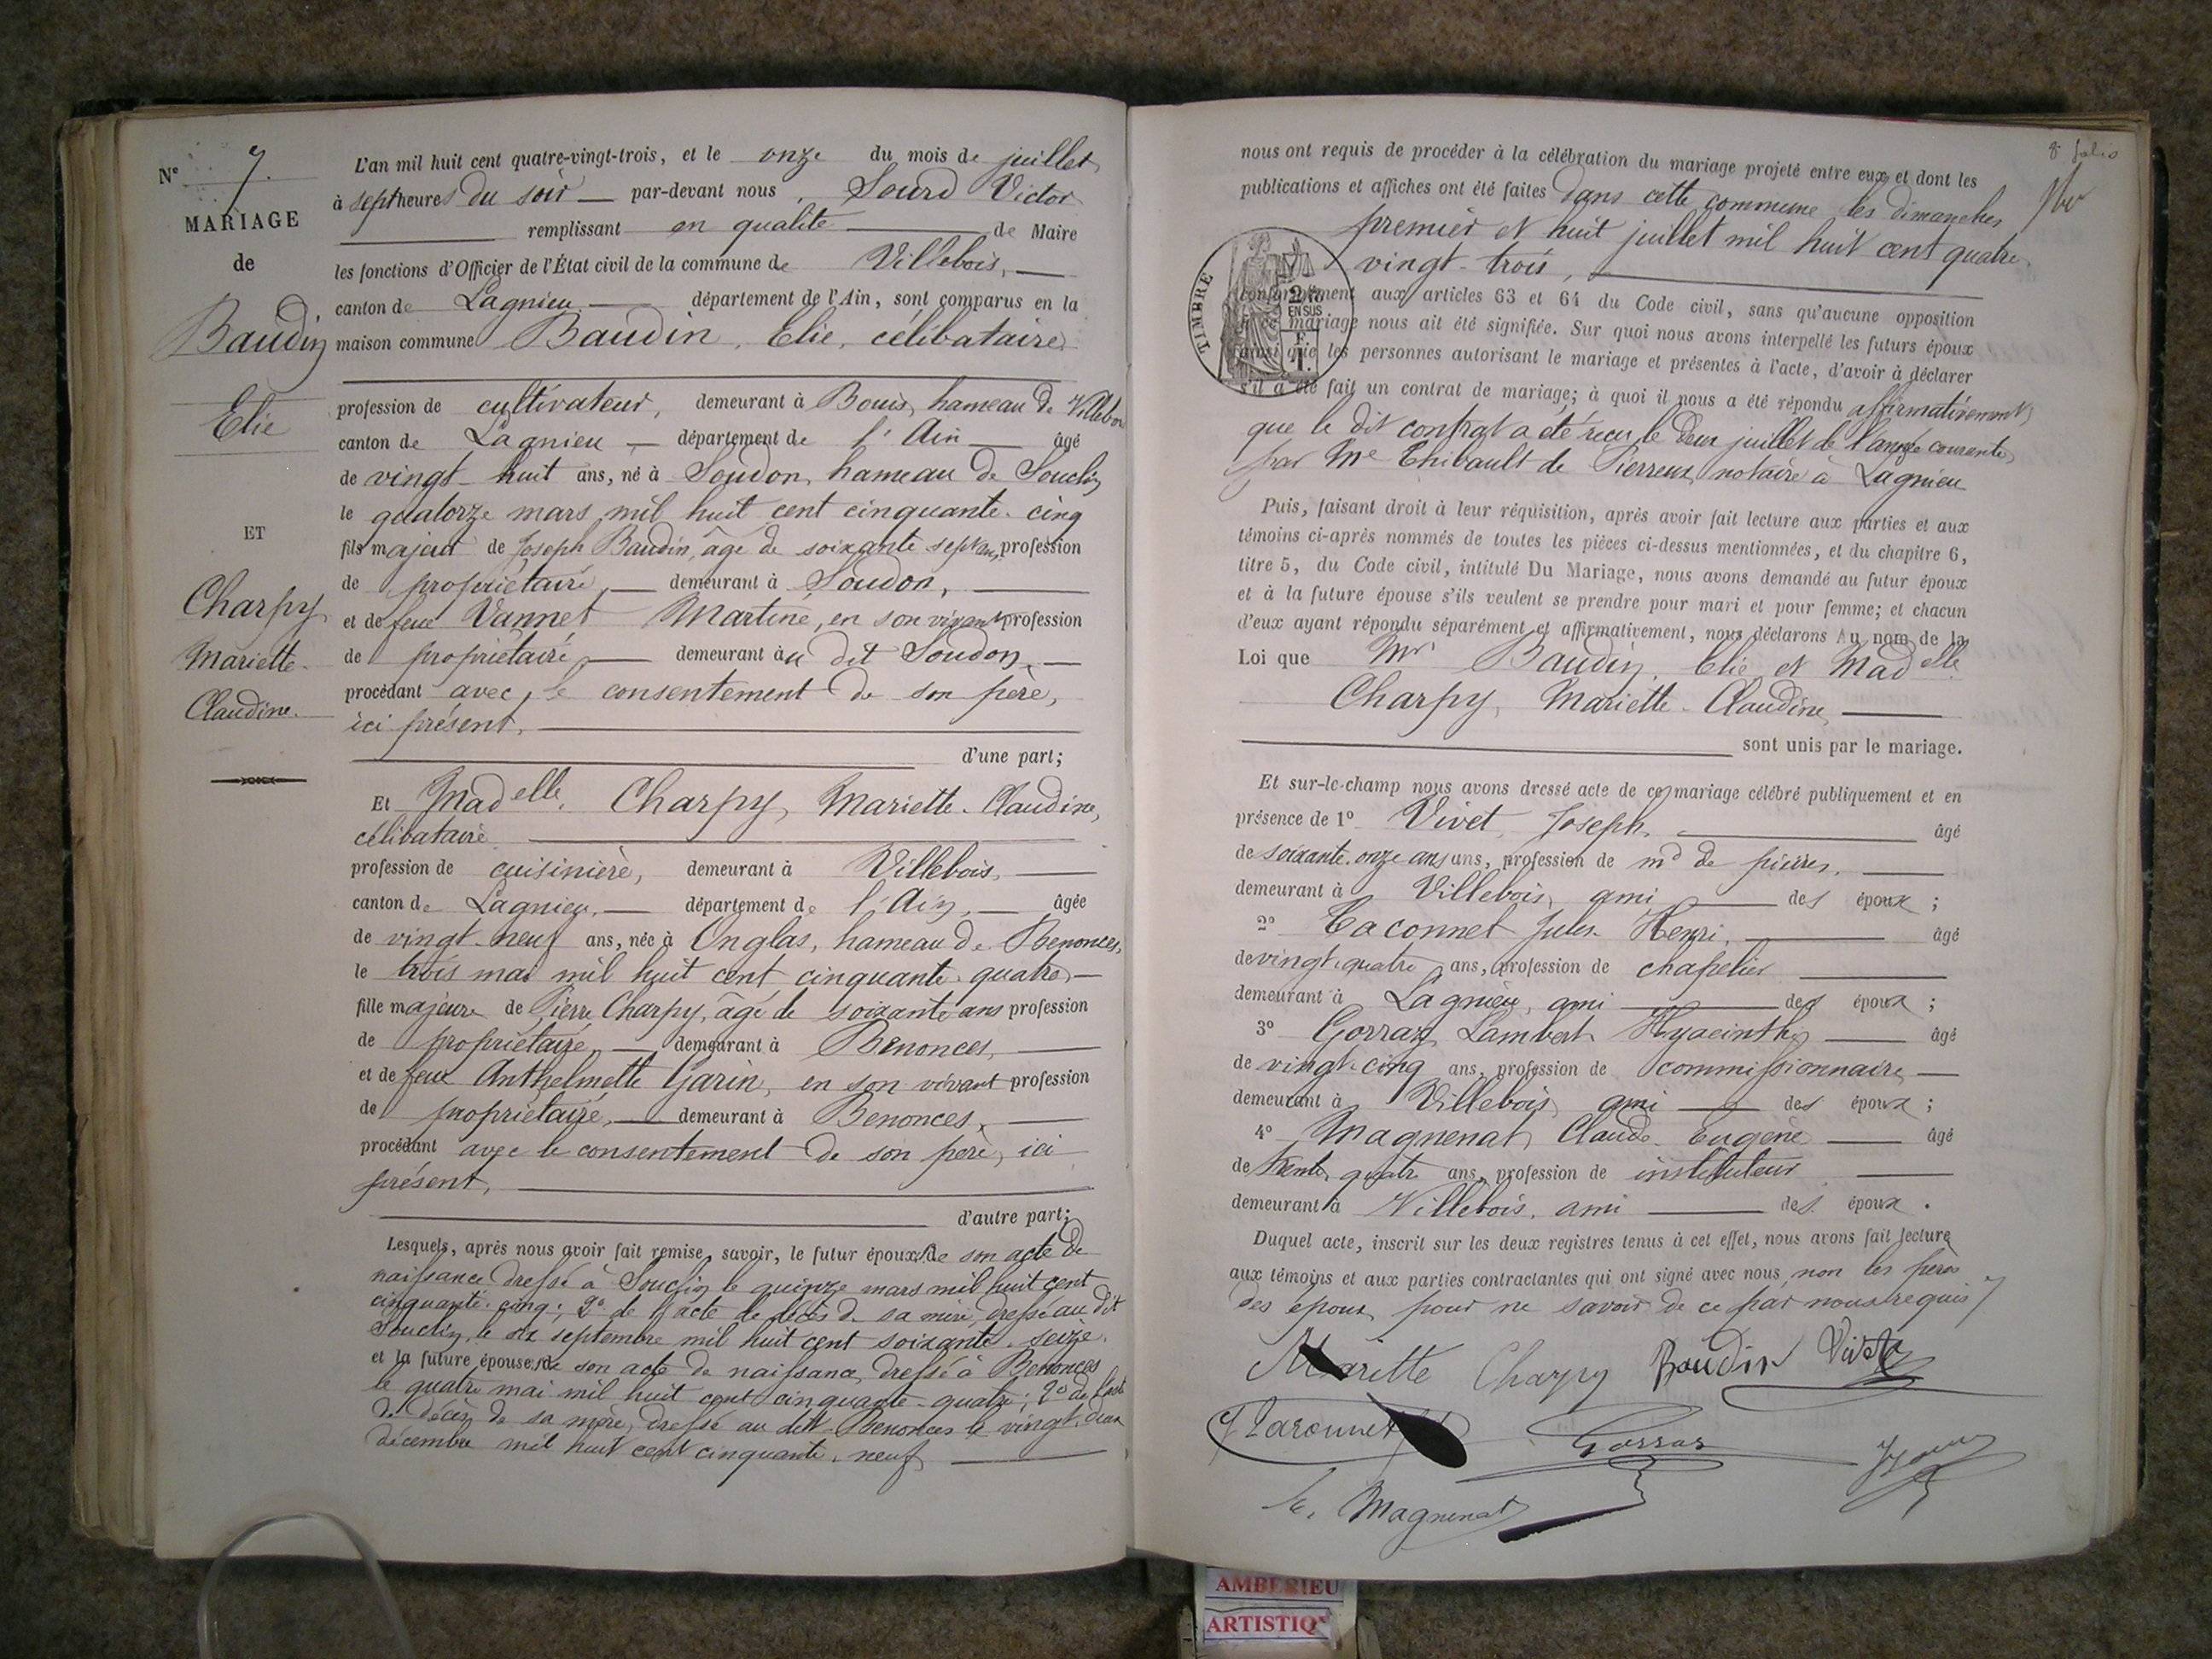 N° 7.
MARIAGE
de
Baudin
Elie
ET
Charpy
Mariette
Claudine.
L'an mil huit cent quatre-vingt-trois, et le onze du mois de juillet
à sept heures du soir — par-devant nous, Sourd Victor
remplissant en qualité de Maire
les fonctions d'Officier de l'État civil de la commune de Villebois, —
canton de Lagnieu — département de l'Ain, sont comparus en la
maison commune Baudin, Elie, célibataire
profession de cultivateur, demeurant à Bouis, hameau de Villebois
canton de Lagnieu — département de l'Ain — âgé
de vingt-huit ans, né à Soudon, hameau de Souclin
le quatorze mars mil huit cent cinquante-cinq
fils majeur de Joseph Baudin, âgé de soixante sept ans, profession
de propriétaire, — demeurant à Soudon, —
et de feue Vannet Martine, en son vivant profession
de propriétaire, — demeurant au dit Soudon, —
procédant avec le consentement de son père,
ici présent, —
d'une part;
Et Mad elle. Charpy, Mariette-Claudine,
célibataire
profession de cuisinière, demeurant à Villebois, —
canton de Lagnieu, — département de l'Ain, — âgée
de vingt-neuf ans, née à Onglas, hameau de Benonces,
le trois mai mil huit cent cinquante-quatre —
fille majeure de Pierre Charpy, âgé de soixante ans profession
de propriétaire, — demeurant à Benonces, —
et de feue Anthelmette Garin, en son vivant profession
de propriétaire, — demeurant à Benonces, —
procédant avec le consentement de son père, ici
présent, —
d'autre part;
Lesquels, après nous avoir fait remise, savoir, le futur époux de son acte de
naissance dressé à Souclin le quinze mars mil huit cent
cinquante-cinq; 2° de l'acte de décès de sa mère, dressé au dit
Souclin, le six septembre mil huit cent soixante-seize.
et la future épouse de son acte de naissance, dressé à Benonces
le quatre mai mil huit cent cinquante-quatre; 2° de l'acte
de décès de sa mère, dressé au dit Benonces le vingt-deux
décembre mil huit cent cinquante-neuf —
8 folio
nous ont requis de procéder à la célébration du mariage projeté entre eux et dont les
publications et affiches ont été faites dans cette commune les dimanches
premier et huit juillet mil huit cent quatre
vingt-trois, —
TIMBRE
EN SUS
conformément aux articles 63 et 64 du Code civil, sans qu'aucune opposition
mariage nous ait été signifiée. Sur quoi nous avons interpellé les futurs époux
ainsi que les personnes autorisant le mariage et présentes à l'acte, d'avoir à déclarer
s'il a été fait un contrat de mariage; à quoi il nous a été répondu affirmativement,
que le dit contrat a été reçu le deux juillet de l'année courante,
par Me Thibault de Pierreux, notaire à Lagnieu
Puis, faisant droit à leur réquisition, après avoir fait lecture aux parties et aux
témoins ci-après nommés de toutes les pièces ci-dessus mentionnées, et du chapitre 6,
titre 5, du Code civil, intitulé Du Mariage, nous avons demandé au futur époux
et à la future épouse s'ils veulent se prendre pour mari et pour femme; et chacun
d'eux ayant répondu séparément et affirmativement, nous déclarons Au nom de la
Loi que Mr Baudin, Elie et Mad elle
Charpy, Mariette-Claudine, —
sont unis par le mariage.
Et sur-le-champ nous avons dressé acte de ce mariage célébré publiquement et en
présence de 1° Vivet, Joseph, — âgé
de soixante-onze ans ans, profession de md de pierres, —
demeurant à Villebois, ami — des époux;
2° Taconnet Jules Henri, — âgé
de vingt-quatre ans, profession de chapelier —
demeurant à Lagnieu, ami — des époux;
3° Gorraz, Lambert Hyacinthe — âgé
de vingt-cinq ans, profession de commissionnaire —
demeurant à Villebois, ami — des époux;
4° Magnenat, Claude-Eugène — âgé
de trente-quatre ans, profession de instituteur —
demeurant à Villebois, ami — des époux.
Duquel acte, inscrit sur les deux registres tenus à cet effet, nous avons fait lecture
aux témoins et aux parties contractantes qui ont signé avec nous, non les pères
des époux, pour ne savoir de ce par nous requis
Mariette Charpy Baudin Vivet
J Taconnet Gorraz
Magnenat
AMBERIEU
ARTISTIQ